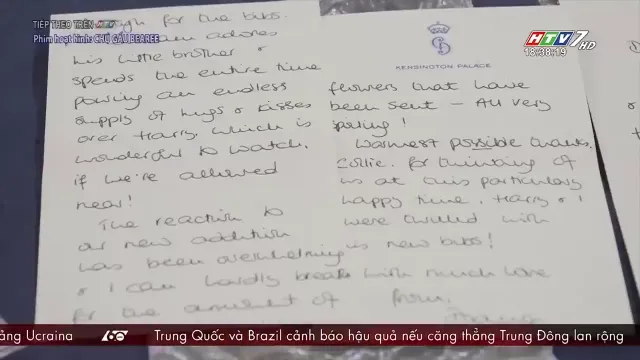 TIẾP THEO TRÊN HTV7
Phim hoạt hình: CHÚ GẤU BEAREE
HTV7 HD
18:38:19
for the bibs.
adores
his little brother &
spends the entire time
pouring an endless
supply of hugs & kisses
over Harry, which is
wonderful to watch,
if we're allowed
near!
The reaction to
our new addition
has been overwhelming
& I can hardly breathe
for the amount of
KENSINGTON PALACE
flowers that have
been sent – All very
spoiling!
Warmest possible thanks,
Collie, for thinking of
us at this particularly
happy time. Harry & I
were thrilled with
his new bibs!
With much love
from,
ảng Ucraina
60
Trung Quốc và Brazil cảnh báo hậu quả nếu căng thẳng Trung Đông lan rộng